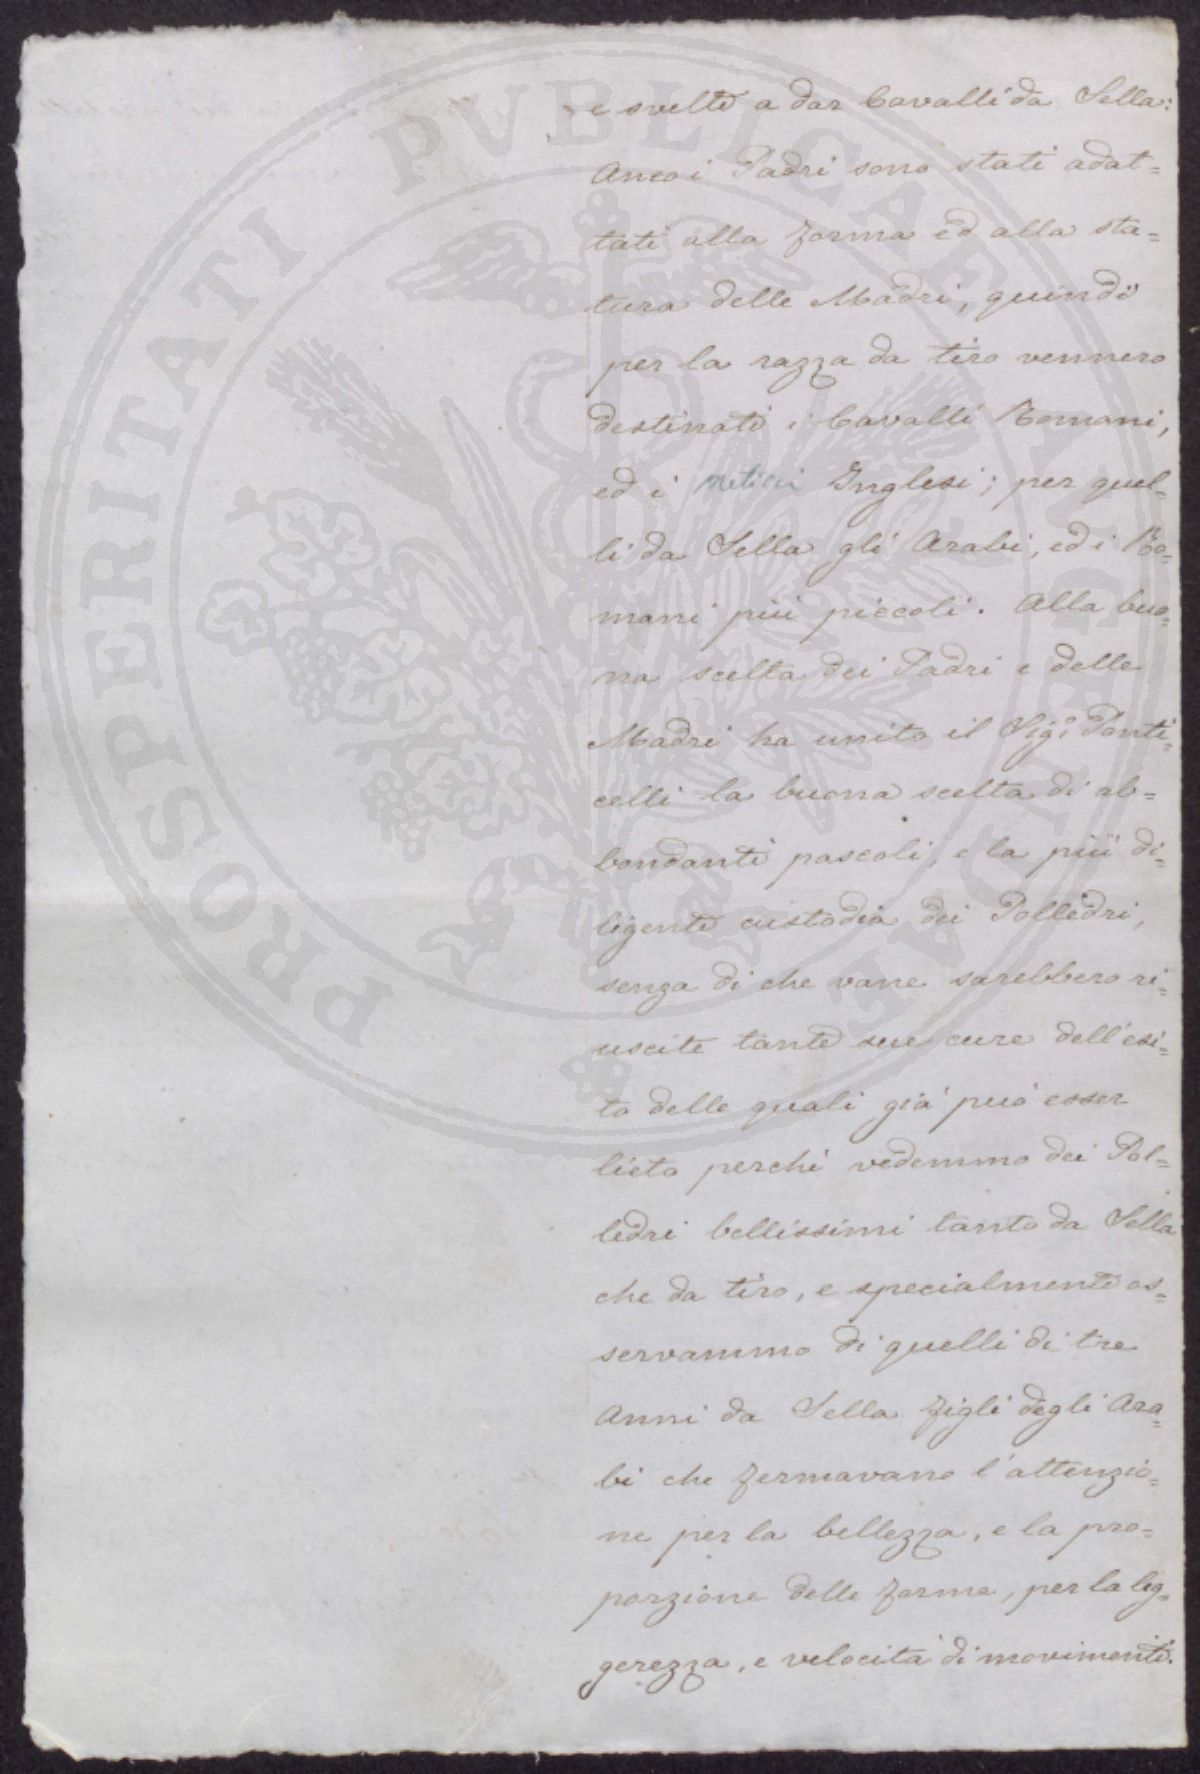 e svelte a dar Cavalli da Sella:
Anco i Padri sono stati adat=
tati alla forma ed alla sta=
tura delle Madri, quindi
per la razza da tiro vennero
destinati i Cavalli Romani,
ed i meticci Inglesi; per quel=
li da Sella gli Arabi, ed i Ro=
mani più piccoli. Alla buo=
na scelta dei Padri e delle
Madri ha unito il Sig.r Ponti=
celli la buona scelta di ab=
bondanti pascoli, e la più di=
ligente custodia dei Polledri,
senza di che vane sarebbero ri=
uscite tante sue cure dell'esi=
to delle quali già può esser
lieto perchè vedemmo dei Pol=
ledri bellissimi tanto da Sella
che da tiro, e specialmente os=
servammo di quelli di tre
Anni da Sella figli degli Ara=
bi che fermavano l'attenzio=
ne per la bellezza, e la pro=
porzione delle forme, per la leg=
gerezza, e velocità di movimenti.
PROSPERITATI PVBLICAE AVGENDAE